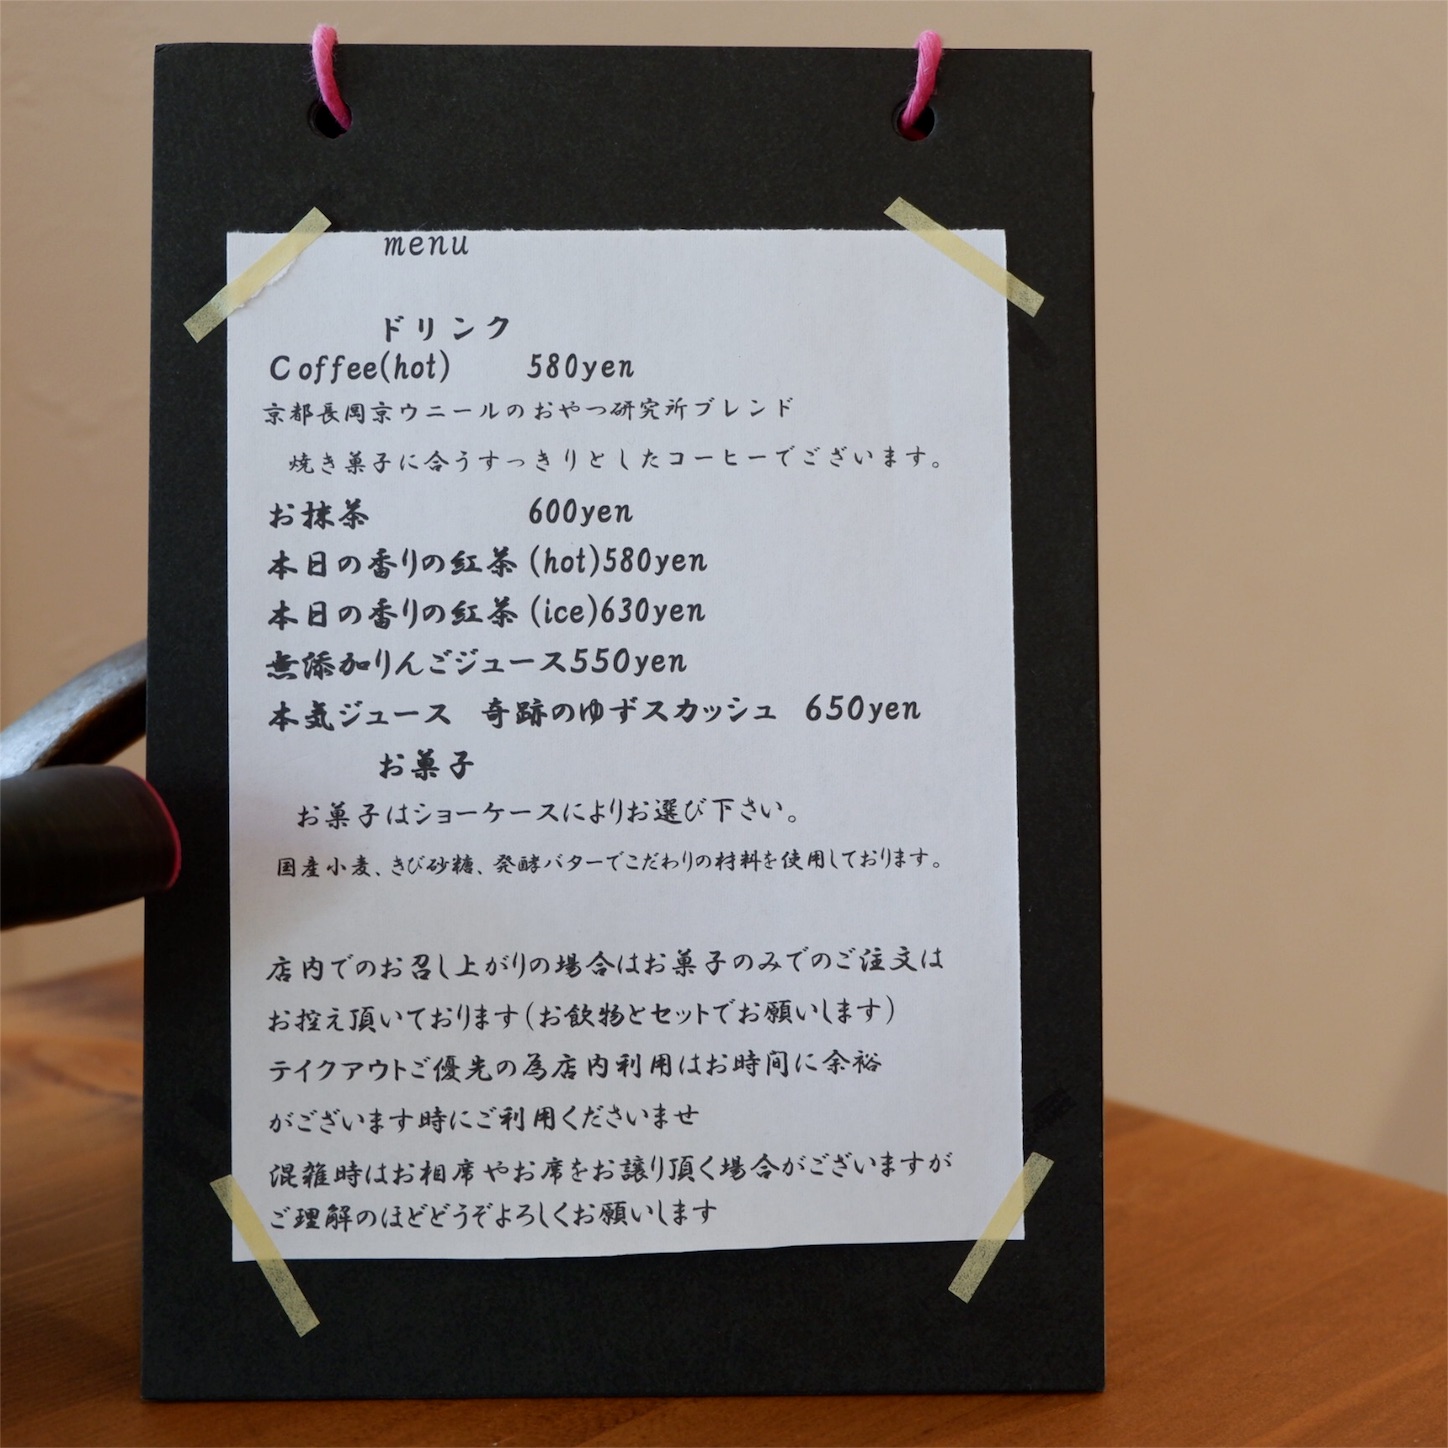 menu
ドリンク
Coffee(hot) 580yen
京都長岡京ウニールのおやつ研究所ブレンド
焼き菓子に合うすっきりとしたコーヒーでございます。
お抹茶 600yen
本日の香りの紅茶 (hot)580yen
本日の香りの紅茶 (ice)630yen
無添加りんごジュース550yen
本気ジュース 奇跡のゆずスカッシュ 650yen
お菓子
お菓子はショーケースによりお選び下さい。
国産小麦、きび砂糖、発酵バターでこだわりの材料を使用しております。
店内でのお召し上がりの場合はお菓子のみでのご注文は
お控え頂いております(お飲物とセットでお願いします)
テイクアウトご優先の為店内利用はお時間に余裕
がございます時にご利用くださいませ
混雑時はお相席やお席をお譲り頂く場合がございますが
ご理解のほどどうぞよろしくお願いします